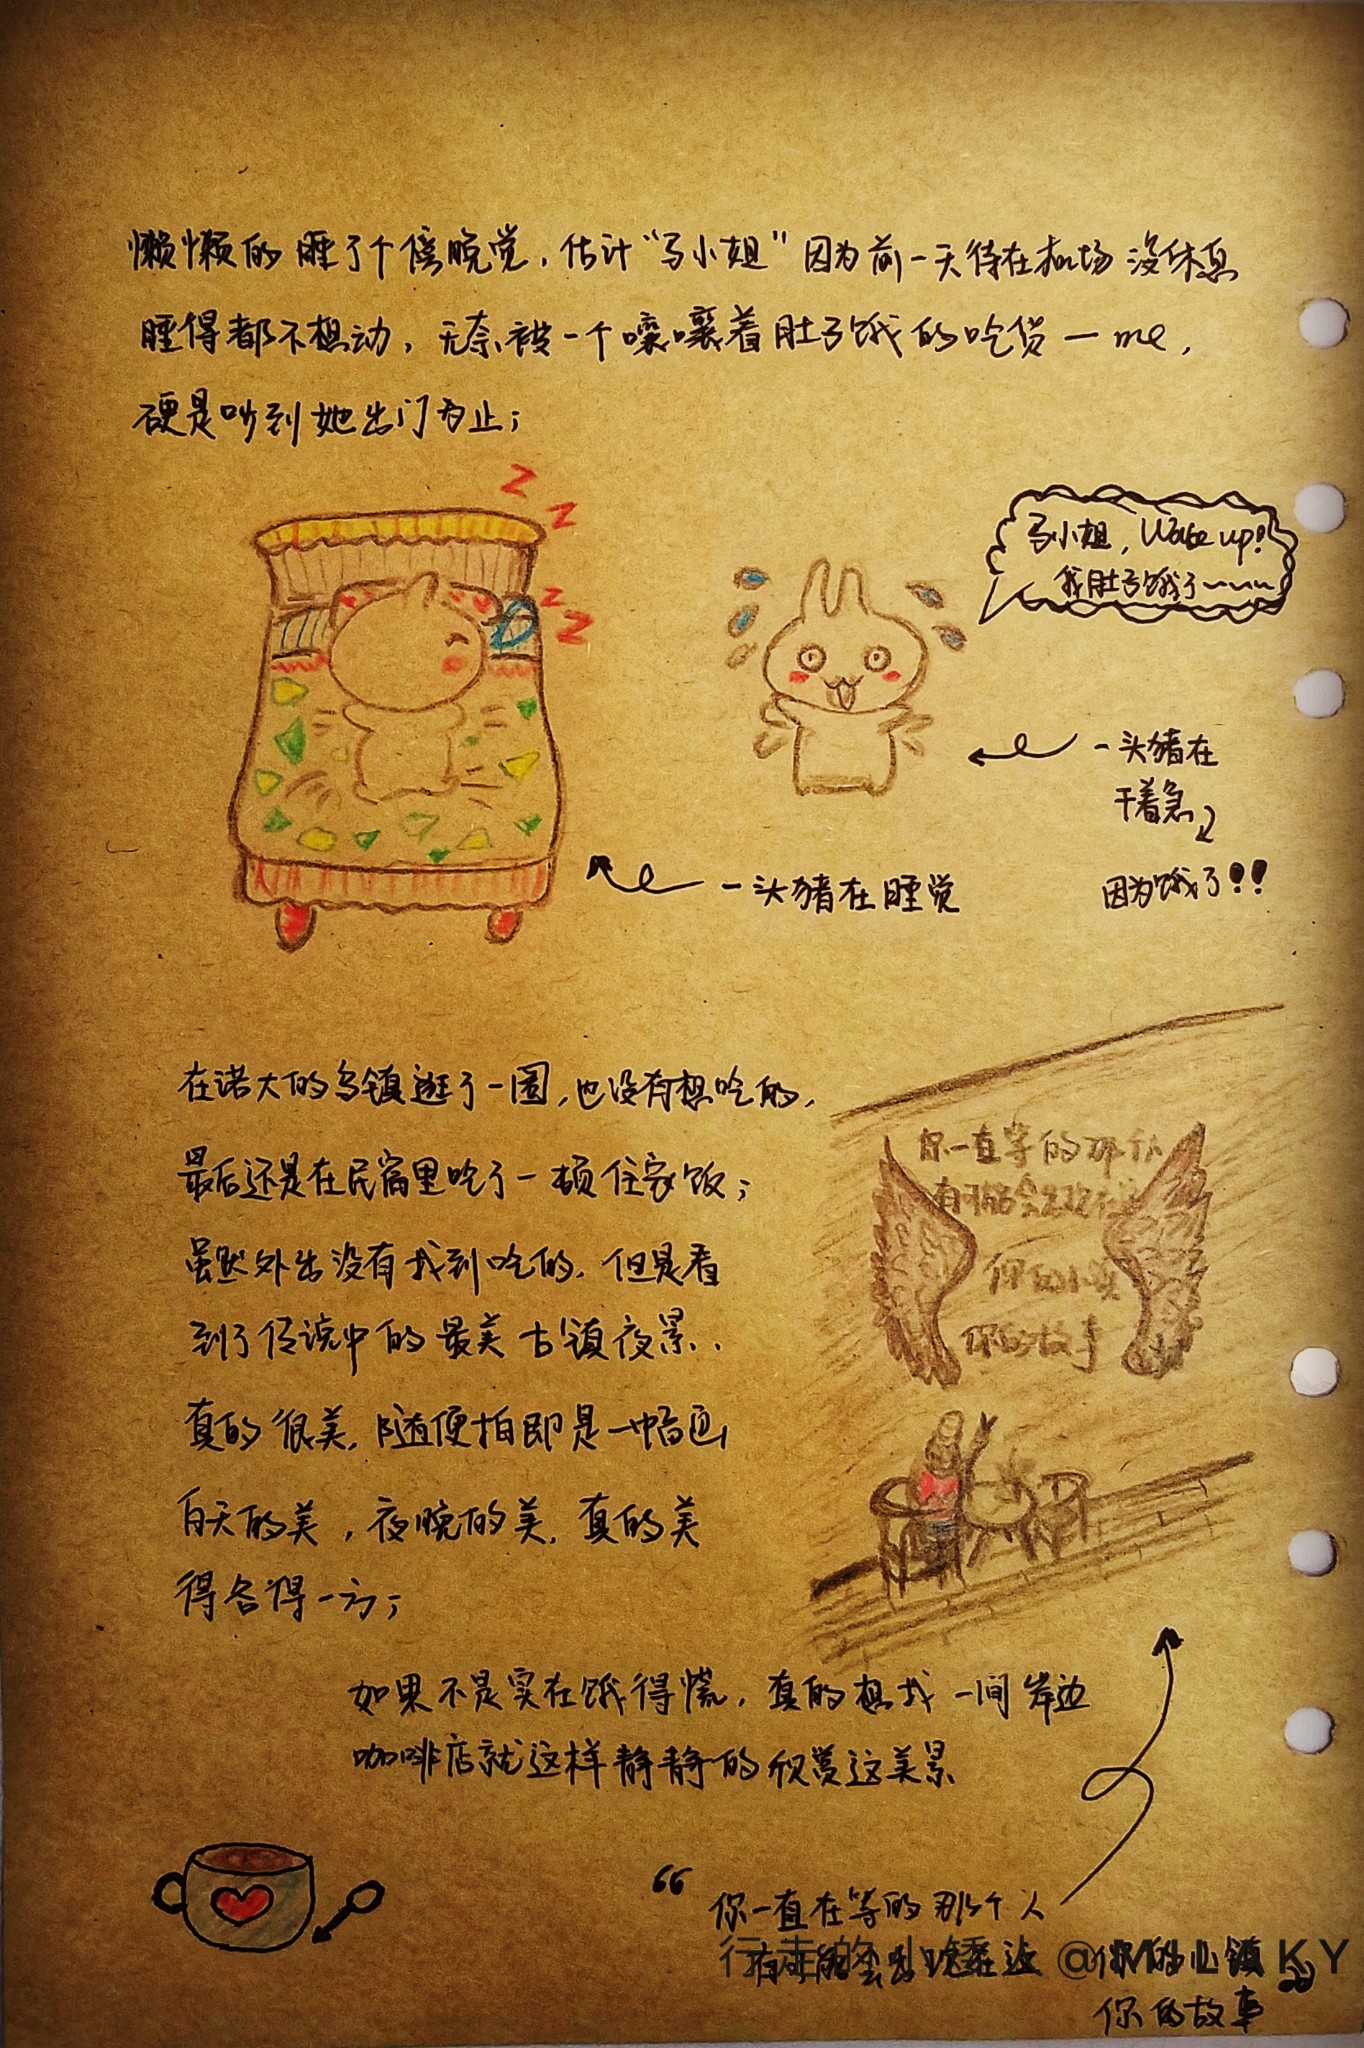 懒懒的睡了个傍晚觉,估计“马小姐”因为前一天待在机场没休息
睡得都不想动,无奈被一个嚷嚷着肚子饿的吃货一me,
硬是吵到她出门为止;
Z
Z
Z
Z
马小姐,Wake up!
我肚子饿了~~~
一头猪在
干着急
因为饿了!!
一头猪在睡觉
在诺大的乌镇逛了一圈,也没有想吃的,
最后还是在民宿里吃了一顿住家饭;
虽然外出没有找到吃的,但是看
到了传说中的最美古镇夜景.
真的很美,随便拍即是一幅画
白天的美,夜晚的美,真的美
得各得一方;
你一直等的那个人
有可能会出现在这
你的小镇
你的故事
如果不是实在饿得慌,真的想找一间岸边
咖啡店就这样静静的欣赏这美景
“你一直在等的那个人
有可能会出现在这 你的小镇”
你的故事
行走的小矮人@MILKY